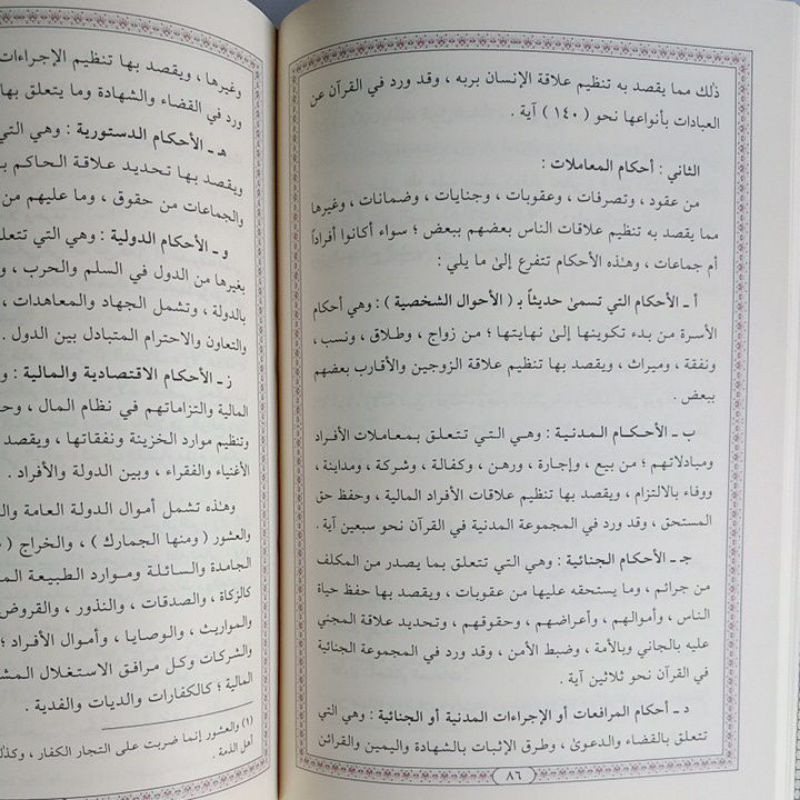 ذلك مما يقصد به تنظيم علاقة الإنسان بربه ، وقد ورد في القرآن عن
العبادات بأنواعها نحو ( ١٤٠ ) آية .
الثاني : أحكام المعاملات :
من عقود ، وتصرفات ، وعقوبات ، وجنايات ، وضمانات ، وغيرها
مما يقصد به تنظيم علاقات الناس بعضهم ببعض ؛ سواء أكانوا أفراداً
أم جماعات ، وهذه الأحكام تتفرع إلىٰ ما يلي :
أ ـ الأحكام التي تسمىٰ حديثاً بـ ( الأحوال الشخصية ) : وهي أحكام
الأسرة من بدء تكوينها إلىٰ نهايتها ؛ من زواج ، وطلاق ، ونسب ،
ونفقة ، وميراث ، ويقصد بها تنظيم علاقة الزوجين والأقارب بعضهم
ببعض .
ب ـ الأحكام المدنية : وهي التي تتعلق بمعاملات الأفراد
ومبادلاتهم ؛ من بيع ، وإجارة ، ورهن ، وكفالة ، وشركة ، ومداينة ،
ووفاء بالالتزام ، ويقصد بها تنظيم علاقات الأفراد المالية ، وحفظ حق
المستحق ، وقد ورد في المجموعة المدنية في القرآن نحو سبعين آية .
جـ ـ الأحكام الجنائية : وهي التي تتعلق بما يصدر من المكلف
من جرائم ، وما يستحقه عليها من عقوبات ، ويقصد بها حفظ حياة
الناس ، وأموالهم ، وأعراضهم ، وحقوقهم ، وتحديد علاقة المجني
عليه بالجاني وبالأمة ، وضبط الأمن ، وقد ورد في المجموعة الجنائية
في القرآن نحو ثلاثين آية .
د ـ أحكام المرافعات أو الإجراءات المدنية أو الجنائية : وهي التي
تتعلق بالقضاء والدعوىٰ ، وطرق الإثبات بالشهادة واليمين والقرائن
٨٦
وغيرها ، ويقصد بها تنظيم الإجراءات
ورد في القضاء والشهادة وما يتعلق بها
هـ ـ الأحكام الدستورية : وهي التي
ويقصد بها تحديد علاقة الحاكم
والجماعات من حقوق ، وما عليهم من
و ـ الأحكام الدولية : وهي التي تتعلق
بغيرها من الدول في السلم والحرب ،
بالدولة ، وتشمل الجهاد والمعاهدات ،
والتعاون والاحترام المتبادل بين الدول .
ز ـ الأحكام الاقتصادية والمالية :
المالية والتزاماتهم في نظام المال ،
وتنظيم موارد الخزينة ونفقاتها ، ويقصد
الأغنياء والفقراء ، وبين الدولة والأفراد .
وهذه تشمل أموال الدولة العامة
والعشور ( ومنها الجمارك ) ، والخراج (
الجامدة والسائلة وموارد الطبيعة
كالزكاة ، والصدقات ، والنذور ، والقروض
والمواريث ، والوصايا ، وأموال الأفراد ؛
والشركات وكل مرافق الاستغلال
المالية ؛ كالكفارات والديات والفدية .
(١) والعشور إنما ضربت على التجار الكفار ،
أهل الذمة .